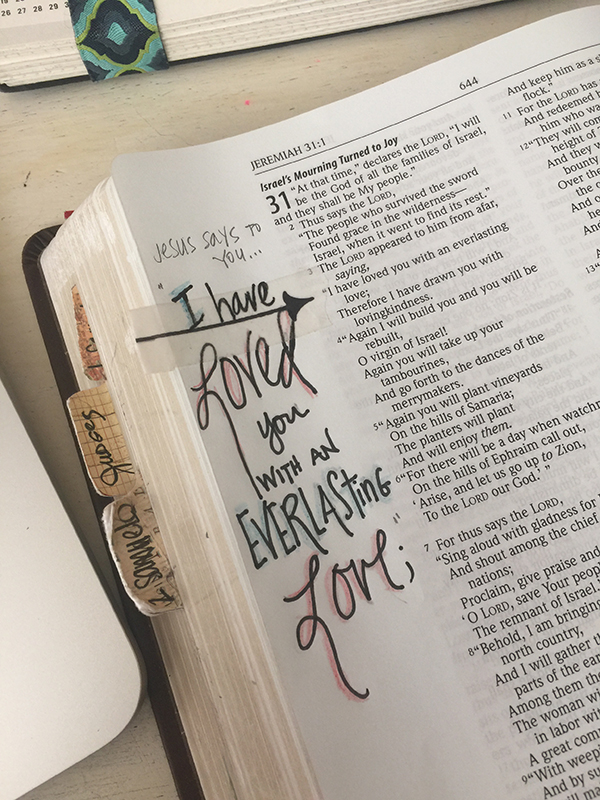 26 27 28 29
644
JEREMIAH 31:1
Israel's Mourning Turned to Joy
31 "At that time," declares the LORD, "I will
be the God of all the families of Israel,
and they shall be My people."
2 Thus says the LORD,
"The people who survived the sword
Found grace in the wilderness—
Israel, when it went to find its rest."
3 The LORD appeared to him from afar,
saying,
"I have loved you with an everlasting
love;
Therefore I have drawn you with
lovingkindness.
4 "Again I will build you and you will be
rebuilt,
O virgin of Israel!
Again you will take up your
tambourines,
And go forth to the dances of the
merrymakers.
5 "Again you will plant vineyards
On the hills of Samaria;
The planters will plant
And will enjoy them.
6 "For there will be a day when watchm
On the hills of Ephraim call out,
'Arise, and let us go up to Zion,
To the LORD our God.' "
7 For thus says the LORD,
"Sing aloud with gladness for
And shout among the chief
nations;
Proclaim, give praise and
'O LORD, save Your people
The remnant of Israel.
8 "Behold, I am bringing
north country,
And I will gather th
parts of the ear
Among them the
The woman wi
in labor wit
A great comp
9 "With weepi
And by su
And keep him as a s
flock."
11 For the LORD has
And redeemed h
him who wa
12 "They will com
height of
And they w
bounty
Over the
And
13 "
Jesus says to
you...
"I have
Loved
you
with an
EVERLASTING
Love;"
Judges
2 Samuel